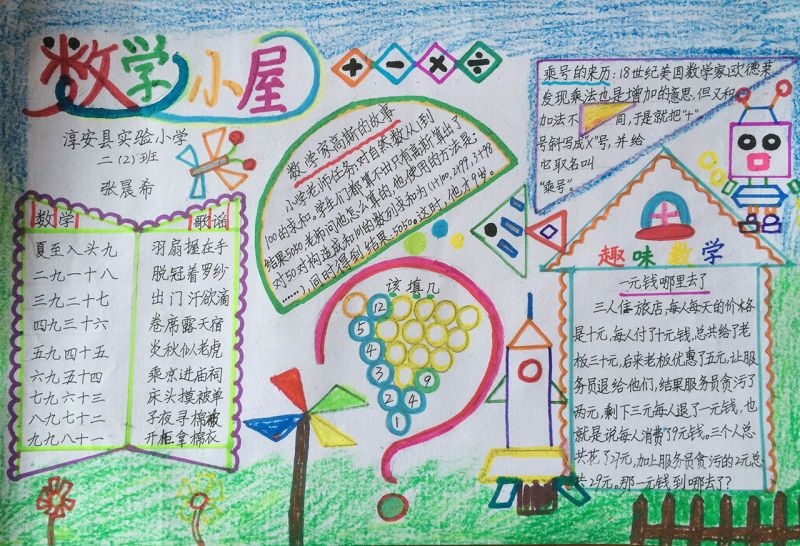 数学小屋
+ - × ÷
淳安县实验小学
二(2)班
张晨希
数学 歌谣
夏至入头九 羽扇握在手
二九一十八 脱冠着罗纱
三九二十七 出门汗欲滴
四九三十六 卷席露天宿
五九四十五 炎秋似老虎
六九五十四 乘凉进庙祠
七九六十三 床头摸被单
八九七十二 子夜寻棉被
九九八十一 开柜拿棉衣
数学家高斯的故事
小学老师任务:对自然数从1到
100的求和。学生们都算不出只有高斯算出了
结果5050老师问他怎么算的,他使用的方法是:
对50对构造成和101的数列求和为(1+100,2+99,3+98
……),同时得到结果:5050。这时,他才9岁。
该填几
12
5
4
3 9
2 4
1
乘号的来历:18世纪美国数学家欧德莱
发现乘法也是增加的意思,但又和
加法不 同,于是就把"+"
号斜写成"X"号,并给
它取名叫
"乘号"。
趣味数学
一元钱哪里去了
三人住旅店,每人每天的价格
是十元,每人付了十元钱,总共给了老
板三十元,后来老板优惠了五元,让服
务员退给他们,结果服务员贪污了
两元,剩下三元每人退了一元钱,也
就是说每人消费了9元钱。三个人总
共花了27元,加上服务员贪污的2元总
共29元。那一元钱到哪去了?